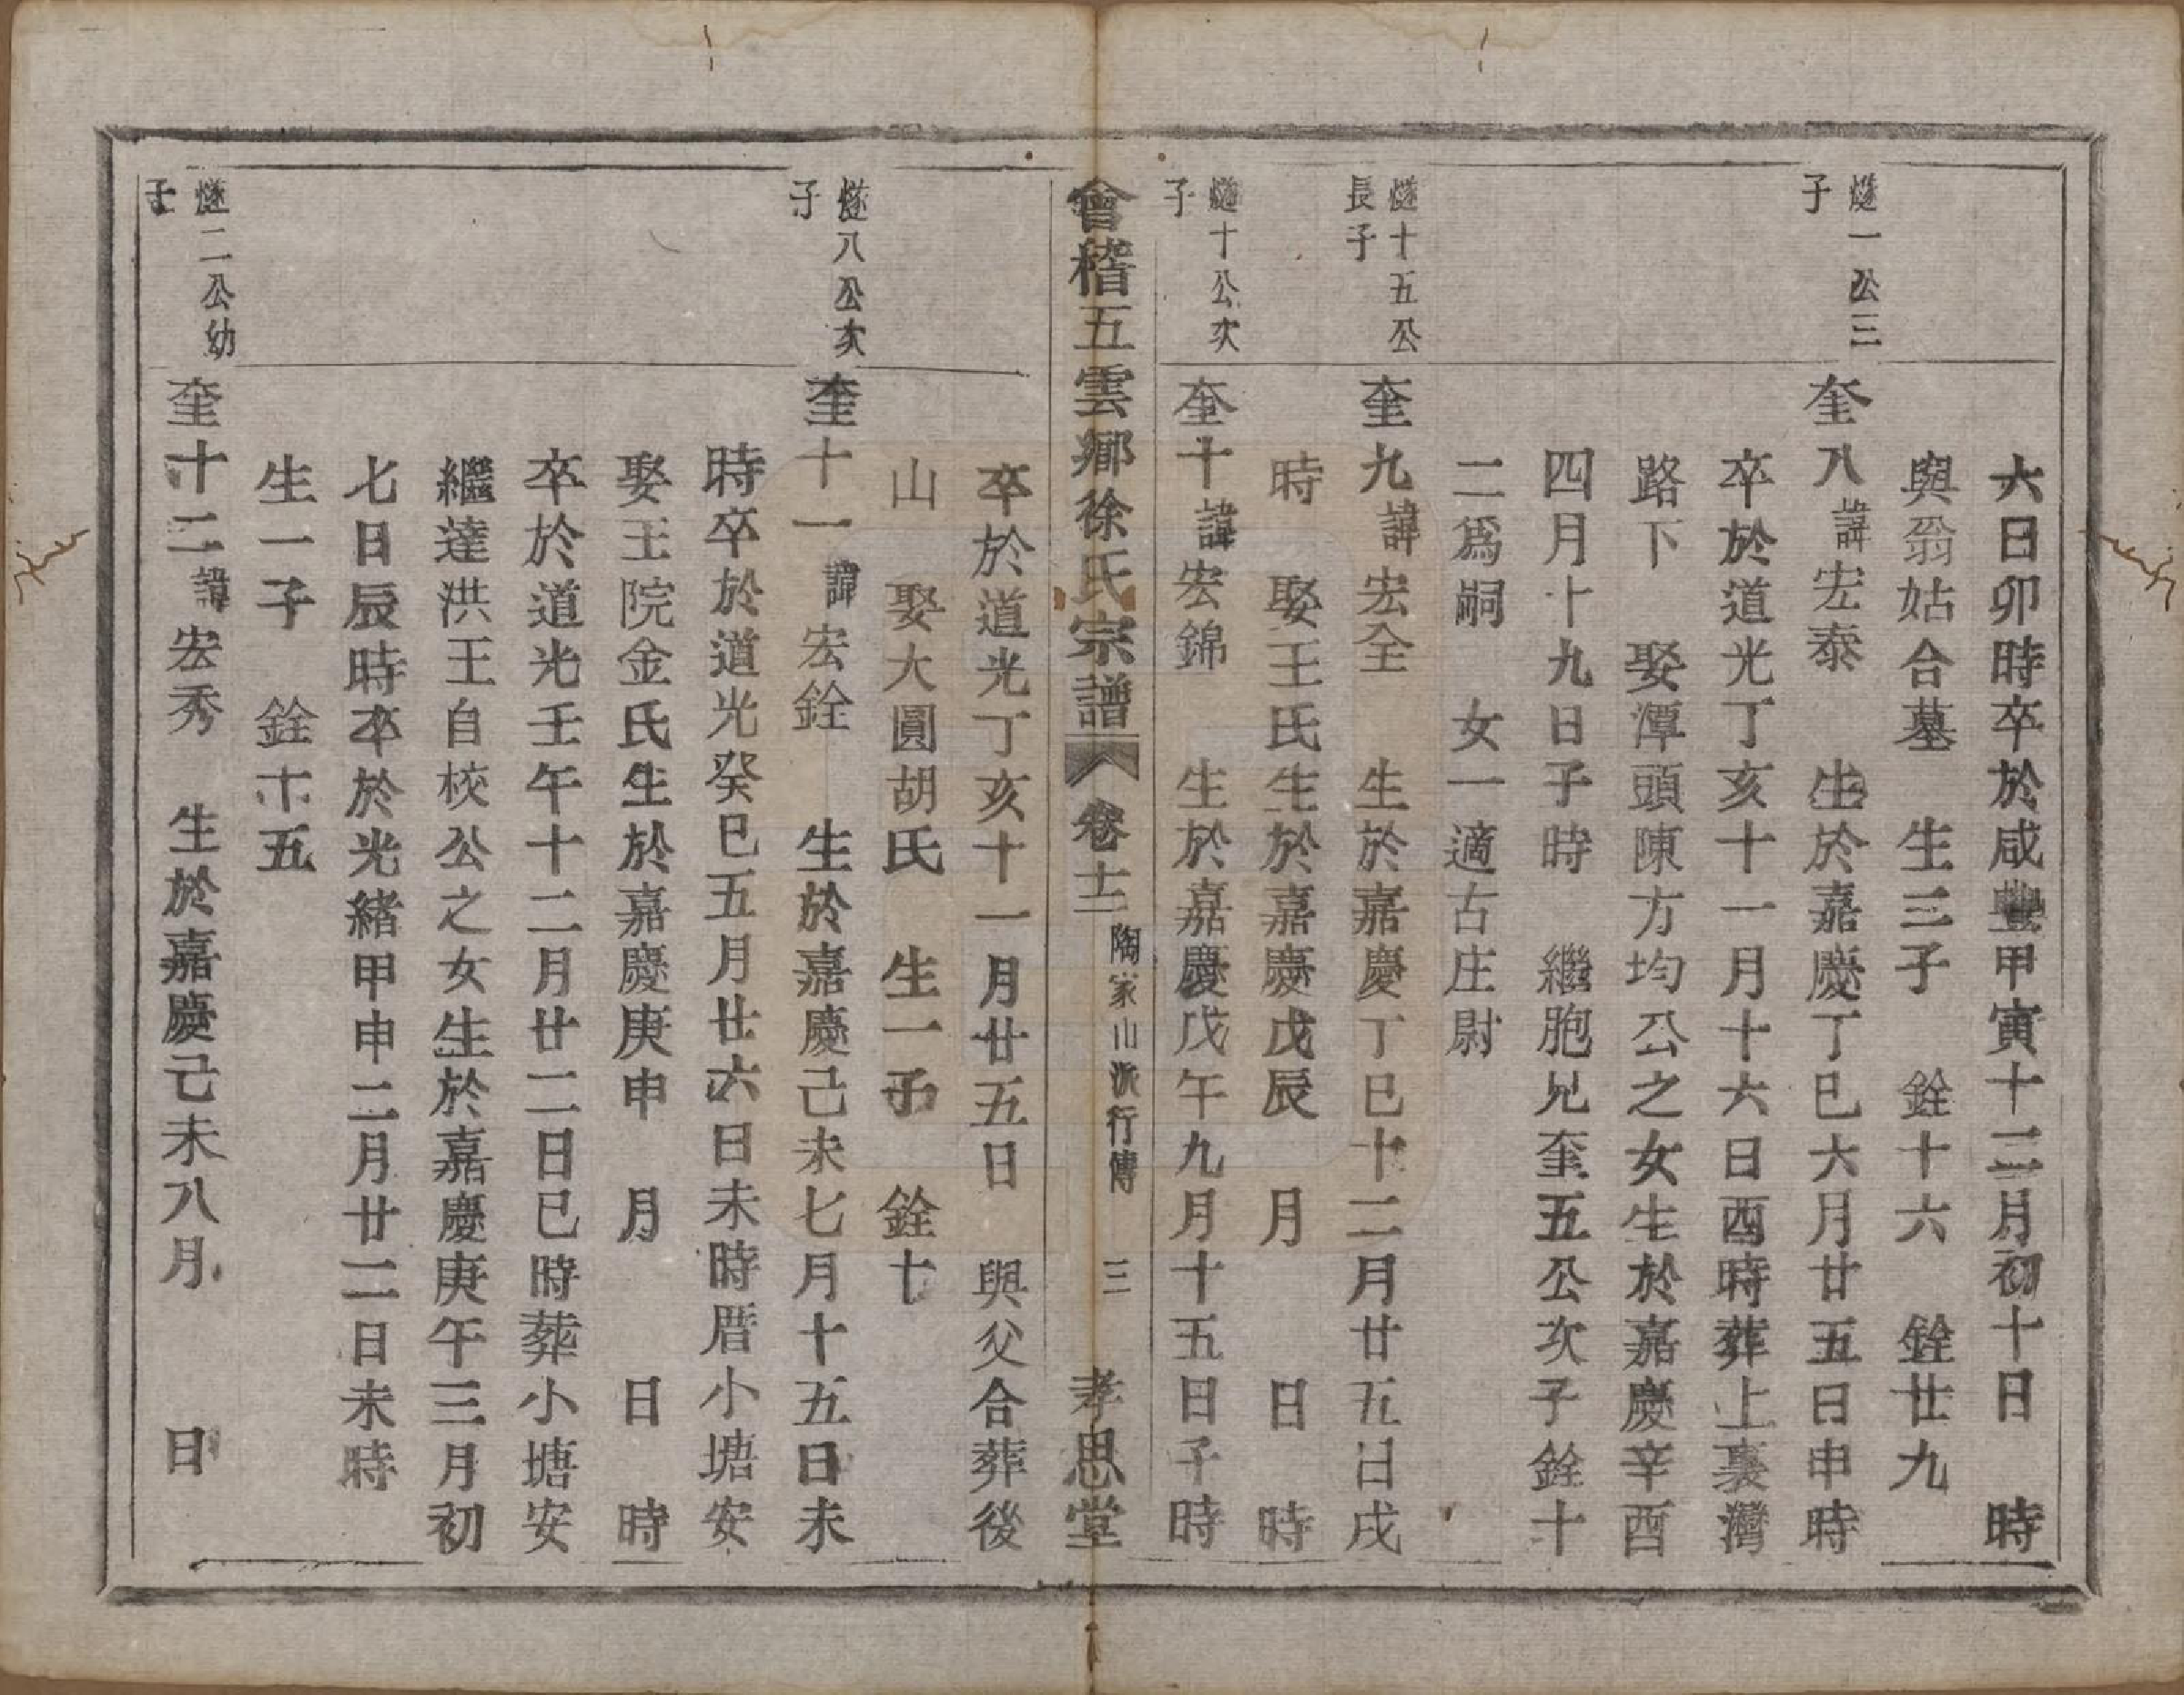 六日卯時卒於咸豐甲寅十二月初十日　時
與翁姑合墓　生三子　銓十六　銓廿九
燧一公三子
奎八諱宏泰　生於嘉慶丁巳六月廿五日申時
卒於道光丁亥十一月十六日酉時葬上裏灣
路下　娶潭頭陳方均公之女生於嘉慶辛酉
四月十九日子時　繼胞兄奎五公次子銓十
二爲嗣　女一適古庄尉
燧十五公長子
奎九諱宏全　生於嘉慶丁巳十二月廿五日戌
時　娶王氏生於嘉慶戊辰　月　日　時
燧十公次子
奎十諱宏錦　生於嘉慶戊午九月十五日子時
會稽五雲鄉徐氏宗譜　卷十二　陶家山派行傳　三　孝思堂
卒於道光丁亥十一月廿五日　與父合葬後
山　娶大圓胡氏　生一子　銓七
燧八公次子
奎十一諱宏銓　生於嘉慶己未七月十五日未
時卒於道光癸巳五月廿六日未時厝小塘安
娶王院金氏生於嘉慶庚申　月　日　時
卒於道光壬午十二月廿二日巳時葬小塘安
繼達洪王自校公之女生於嘉慶庚午三月初
七日辰時卒於光緒甲申二月廿二日未時
生一子　銓十五
燧二公幼子
奎十二諱宏秀　生於嘉慶己未八月　日